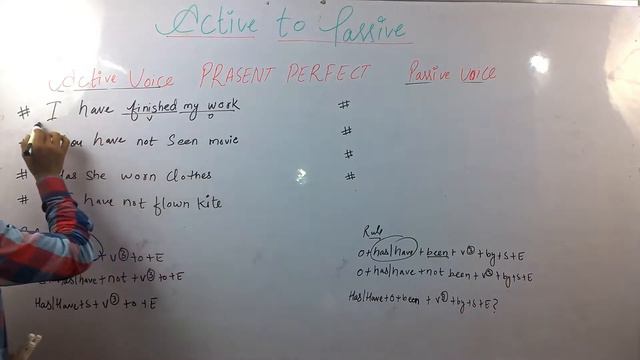 Active to Passive
Active Voice PRASENT PERFECT Passive voice
# I have finished my work #
v o
have not Seen movie #
#
# she worn Clothes #
# have not flown kite
Rule
+ V③ + O + E O + has/have + been + V③ + by + S + E
has/have + not + V③ + O + E O + has/have + not been + V③ + by + S + E
Has/Have + S + V③ + O + E Has/Have + O + been + V③ + by + S + E?